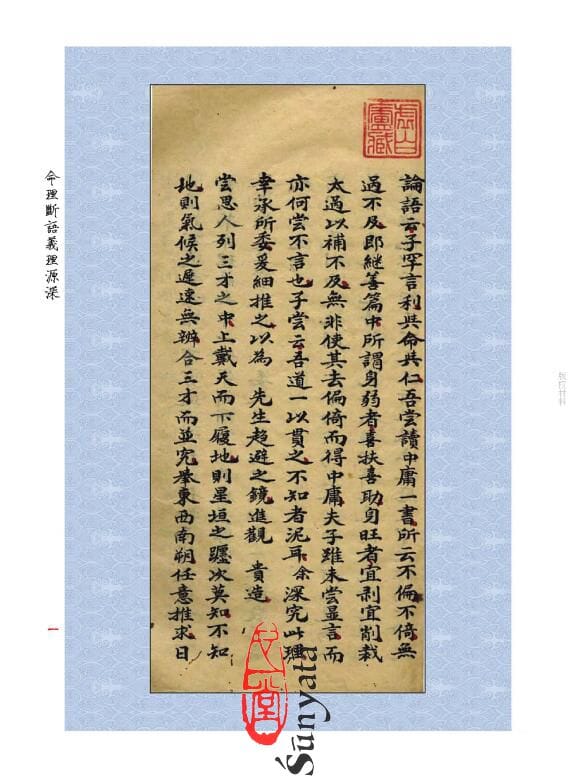 論語云子罕言利與命與仁吾嘗讀中庸一書所云不偏不倚無
過不及即繼善篇中所謂身弱者喜扶喜助身旺者宜剥宜削裁
太過以補不及無非使其去偏倚而得中庸夫子雖未嘗显言而
亦何尝不言也子嘗云吾道一以貫之不知者泥耳余深究此理
幸承所委爰細推之以為 先生趋避之鏡進觀 貴造
嘗思人列三才之中上戴天而下履地則星垣之躔次莫知不知
地則氣候之遲速無辨合三才而並究舉東西南朔任意推求日
命理斷語義理源深
一
虛白廬藏
版权材料
Śūnyatā